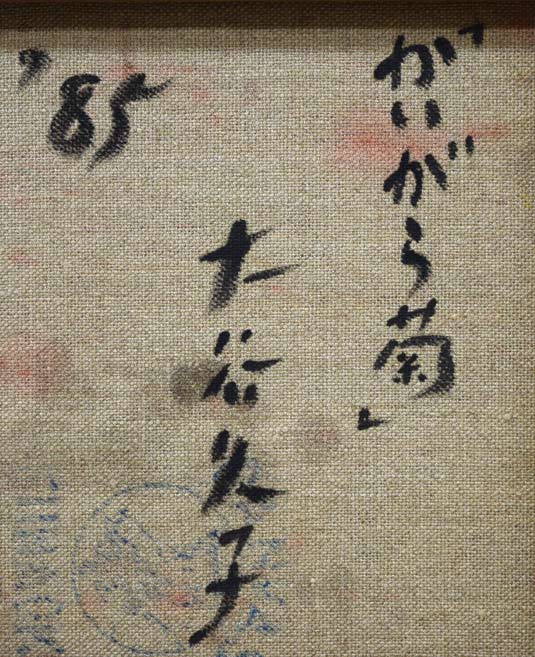 「かいがら菊」
大谷久子
'85